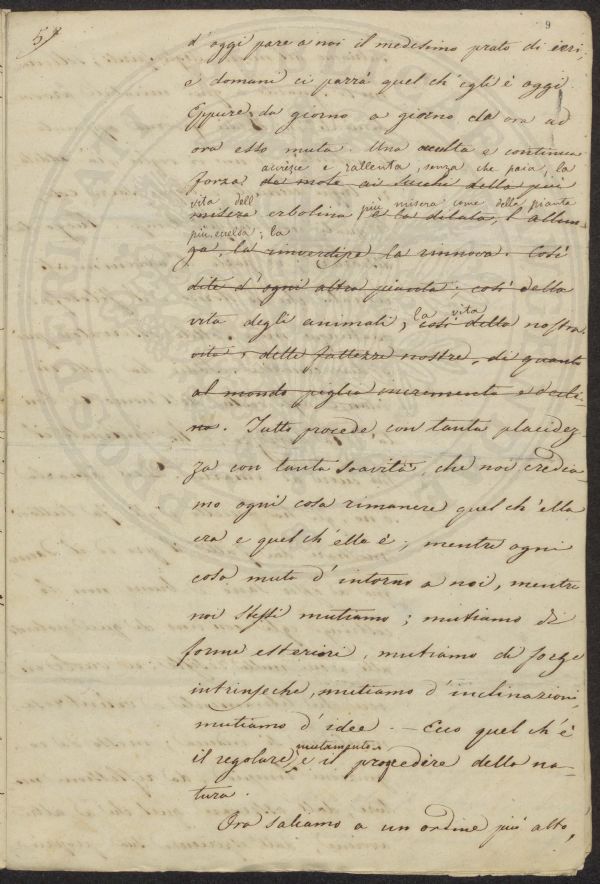 5.
9
d'oggi pare a noi il medesimo prato di ieri,
e domani ci parrà quel ch'egli è oggi.
Eppure da giorno a giorno da ora ad
ora esso muta. Una occulta e continua
accresce e rallenta, senza che paia, la
forza da mole ai succhi della più
vita dell' più misera come della pianta
misera erbolina e la dilata, l'allun-
più eccelsa; la
ga, la rinverdisce la rinnova. Così
dite d'ogni altra pianta, così della
la vita
vita degli animali, così della nostra
vita e delle fattezze nostre, di quanto
al mondo piglia incremento e decli-
na. Tutto procede con tanta placidez-
za con tanta soavità, che noi credia-
mo ogni cosa rimanere quel ch'ella
era e quel ch'ella è; mentre ogni
cosa muta d'intorno a noi, mentre
noi stessi mutiamo; mutiamo di
forme esteriori, mutiamo di forze
intrinseche, mutiamo d'inclinazioni,
mutiamo d'idee. — Ecco quel ch'è
mutamento
il regolare e il procedere della na-
tura.
Ora saliamo a un ordine più alto,